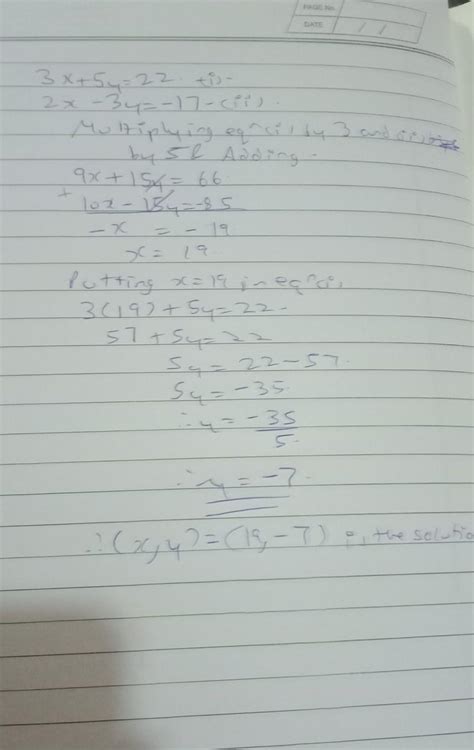 PAGE No.
DATE / /
3x+5y=22 -(i)-
2x-3y=-17-(ii).
Multiplying eqⁿ(i) by 3 and (ii)
by 5 & Adding.
9x+15y=66.
+ 10x-15y=-85
-x = -19
x = 19.
Putting x=19 in eqⁿ(i),
3(19)+5y=22.
57+5y=22
5y = 22-57.
5y = -35.
∴y = -35/5
∴y = -7.
∴(x,y)=(19,-7) the solutio